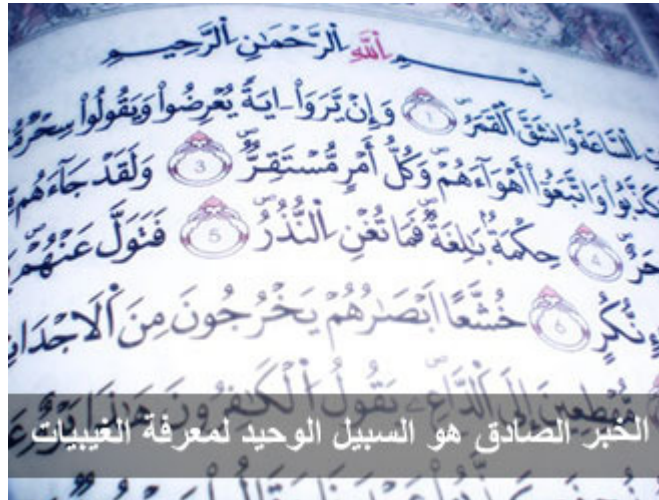 بِسْمِ اِللَّهِ اِلرَّحْمَٰنِ اِلرَّحِيمِ
اَلسَّاعَةُ وَانشَقَّ اَلْقَمَرُ 1 وَإِنْ يَّرَوَاْ ايَةً يُعْرِضُواْ وَيَقُولُواْ سِحْرٌ
كَذَّبُواْ وَاتَّبَعُواْ أَهْوَآءَهُمْ وَكُلُّ أَمْرٍ مُّسْتَقِرٌّ 3 وَلَقَدْ جَآءَهُم
4 حِكْمَةٌ بَٰلِغَةٌ فَمَا تُغْنِ اِلنُّذُرُ 5 فَتَوَلَّ عَنْهُمْ
نُّكُرٍ 6 خُشَّعاً اَبْصَٰرُهُمْ يَخْرُجُونَ مِنَ اَلَاجْدَاثِ
مُّهْطِعِينَ إِلَى اَلدَّاعِ يَقُولُ اُلْكَٰفِرُونَ هَٰذَا يَوْمٌ
الخبر الصادق هو السبيل الوحيد لمعرفة الغيبيات